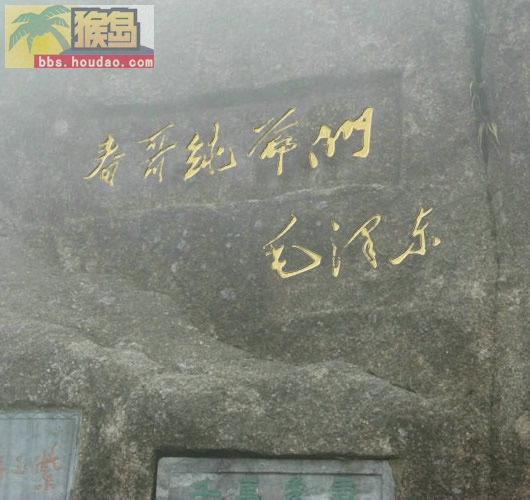 猴岛
bbs.houdao.com
春哥纯爷们
毛泽东